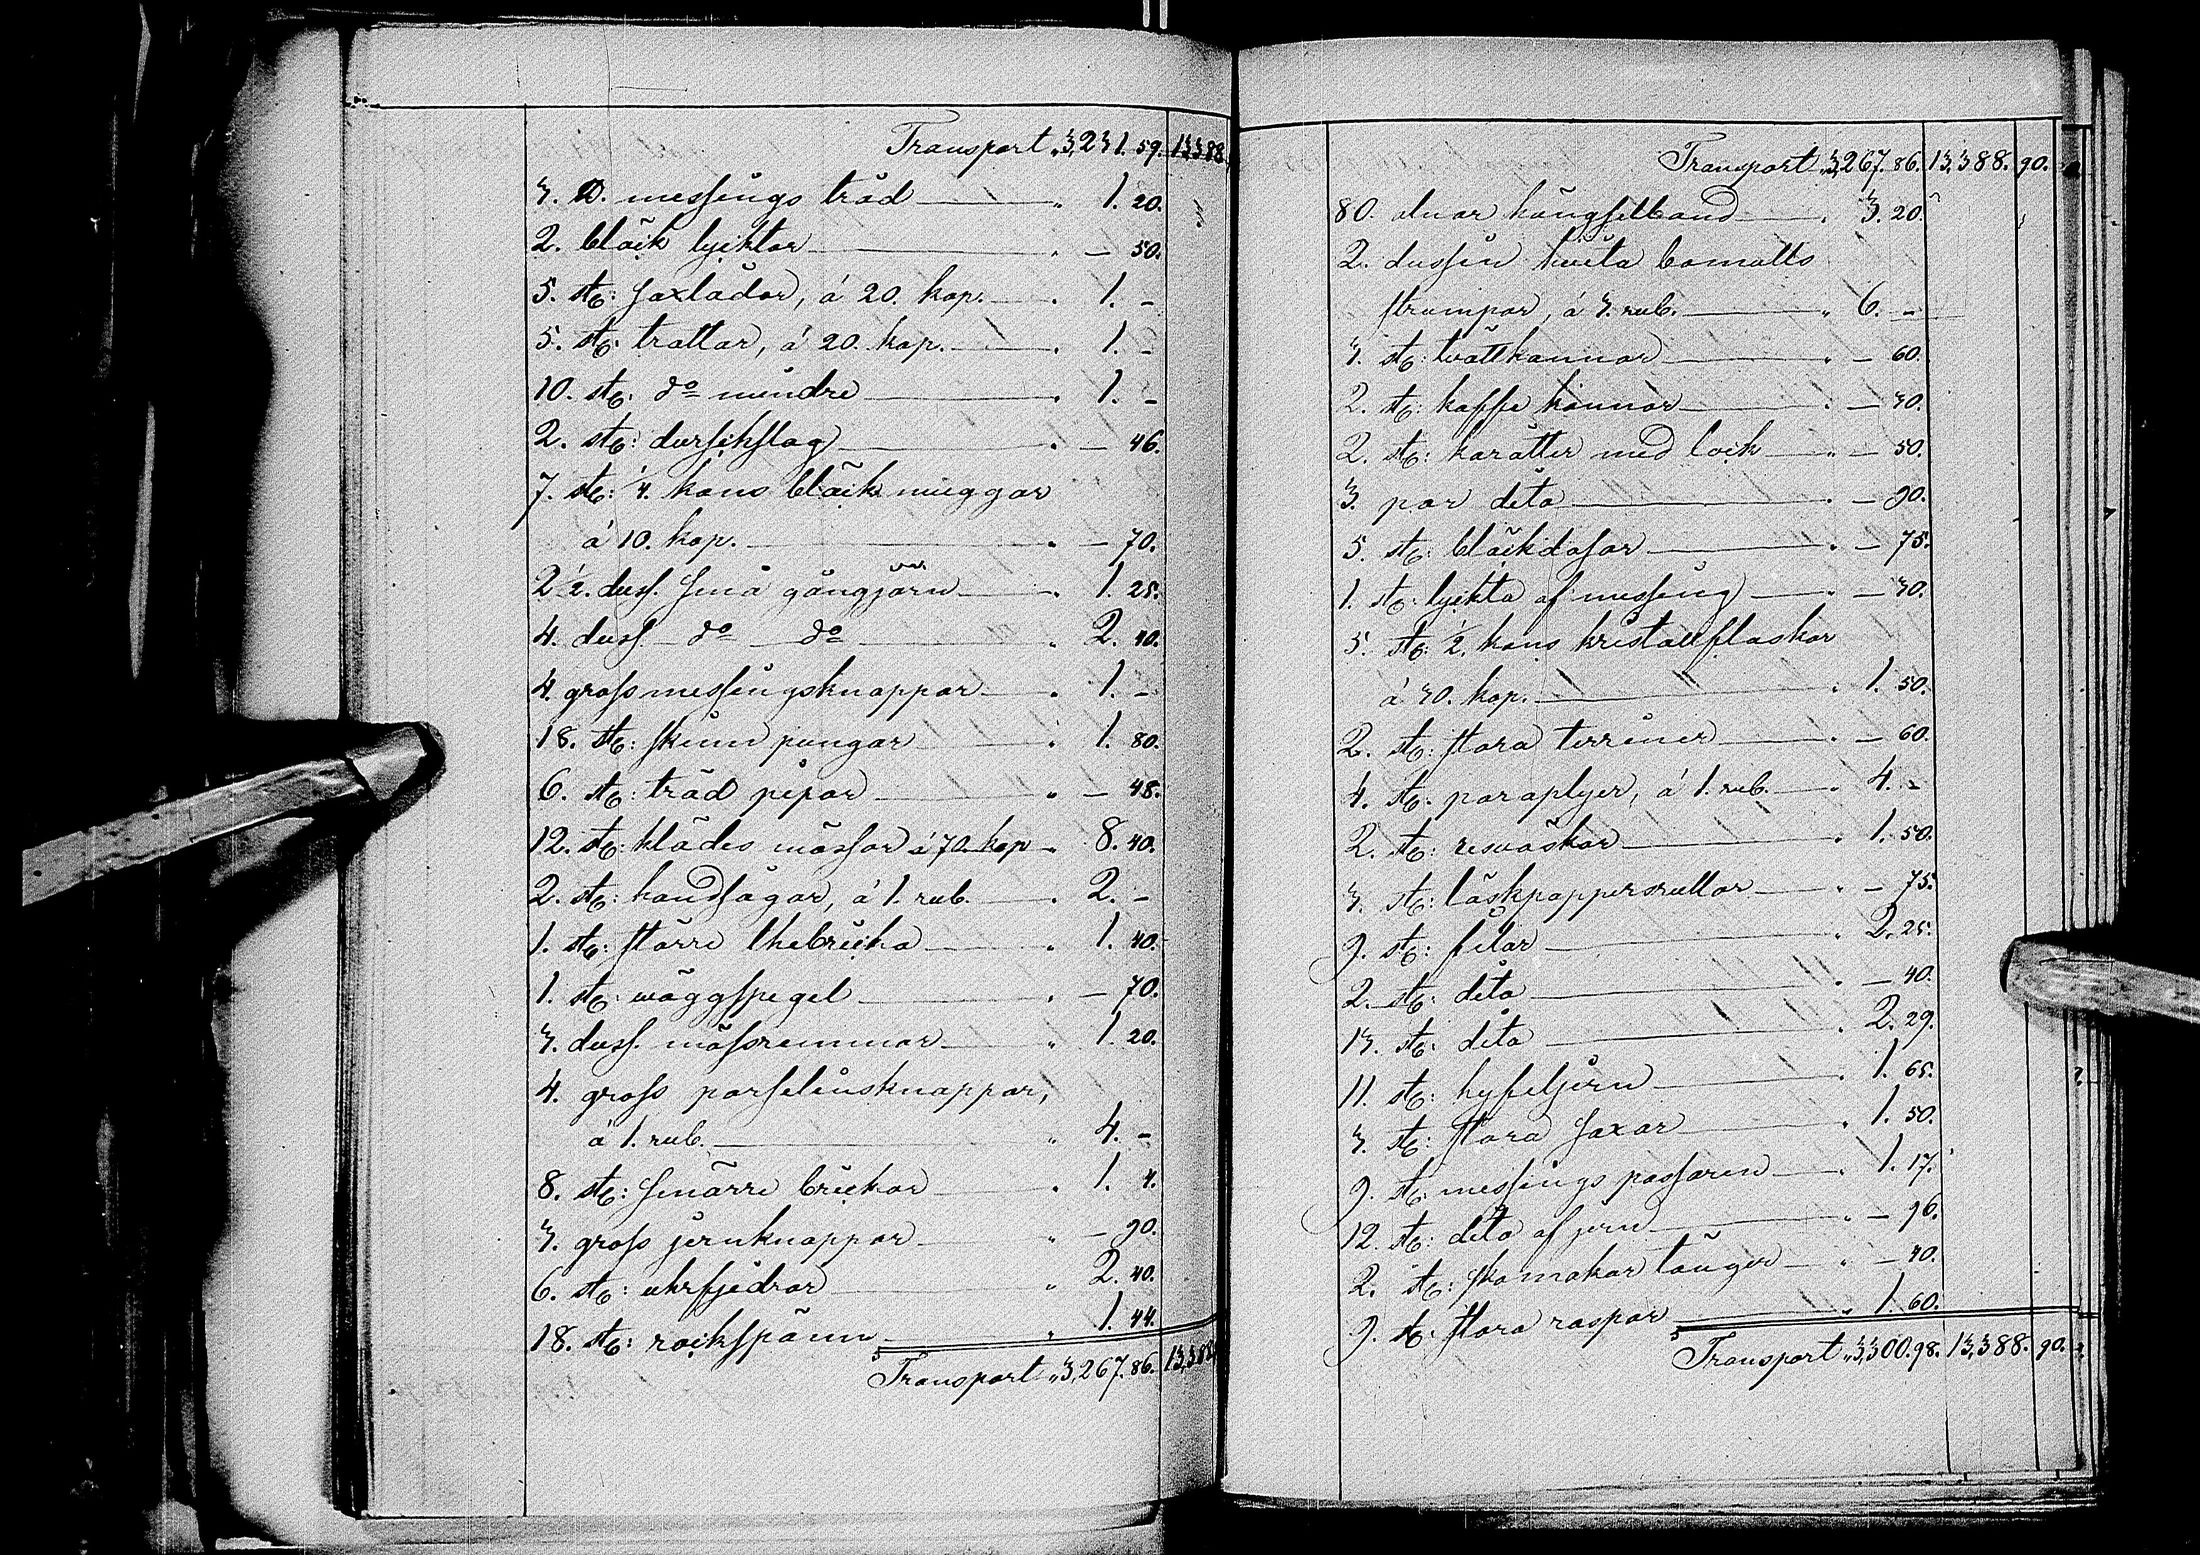 Transport „ 3,231. 59. 13,388
3. ℔. messings tråd „ 1. 20.
2. bläck lycktor „ — 50.
5. st: saxlådor, á 20. kop. „ 1. –
5. st: trattar, á 20. kop. „ 1. –
10. st: do mindre „ 1. –
2. st: durschslag „ — 46.
7. st: 1/4. kans bläck muggar
á 10. kop. „ — 70.
2 1/2. duss. små gångjärn „ 1. 25.
4. duss. do do „ 2. 40.
4. gross messingsknappar „ 1. –
18. st: skinn pungar „ 1. 80.
6. st: träd pipor „ — 48.
12. st: klädes mössor á 70. kop „ 8. 40.
2. st: handsågar, á 1. rub. „ 2. –
1. st: större thebricka „ 1. 40.
1. st: wäggspegel „ — 70.
3. duss. mössremmar „ 1. 20.
4. gross porselinsknappar,
á 1. rub. „ 4. –
8. st: smärre brickor „ 1. 4.
3. gross jernknappar „ — 90.
6. st: uhrfjedrar „ 2. 40.
18. st: rockspänn „ 1. 44.
Transport „ 3,267. 86. 13,388
Transport „ 3,267. 86. 13,388. 90.
80. alnar hängselband „ 3. 20.
2. dussin hwita bomulls
strumpor, á 3. rub. „ 6. –
3. st: twättkannor „ — 60.
2. st: kaffe kannor „ — 30.
2. st: karotter med lock „ — 50.
3. par dito „ — 90.
5. st: bläckdosor „ — 75.
1. st: lyckta af messing „ — 30.
5. st: 1/2. kans kristallflaskor
á 30. kop. „ 1. 50.
2. st: stora terriner „ — 60.
4. st: paraplyer, á 1. rub. „ 4. –
2. st: reswäskor „ 1. 50.
3. st: läskpappersrullar „ — 75.
9. st: filar „ 2. 25.
2. st: dito „ — 40.
13. st: dito „ 2. 29.
11. st: hyfeljern „ 1. 65.
3. st: stora saxar „ 1. 50.
9. st: messings passaren „ 1. 17.
12. st: dito af jern „ — 96.
2. st: skomakar tänger „ — 40.
9. st: stora raspar „ 1. 60.
Transport „ 3,300. 98. 13,388. 90.